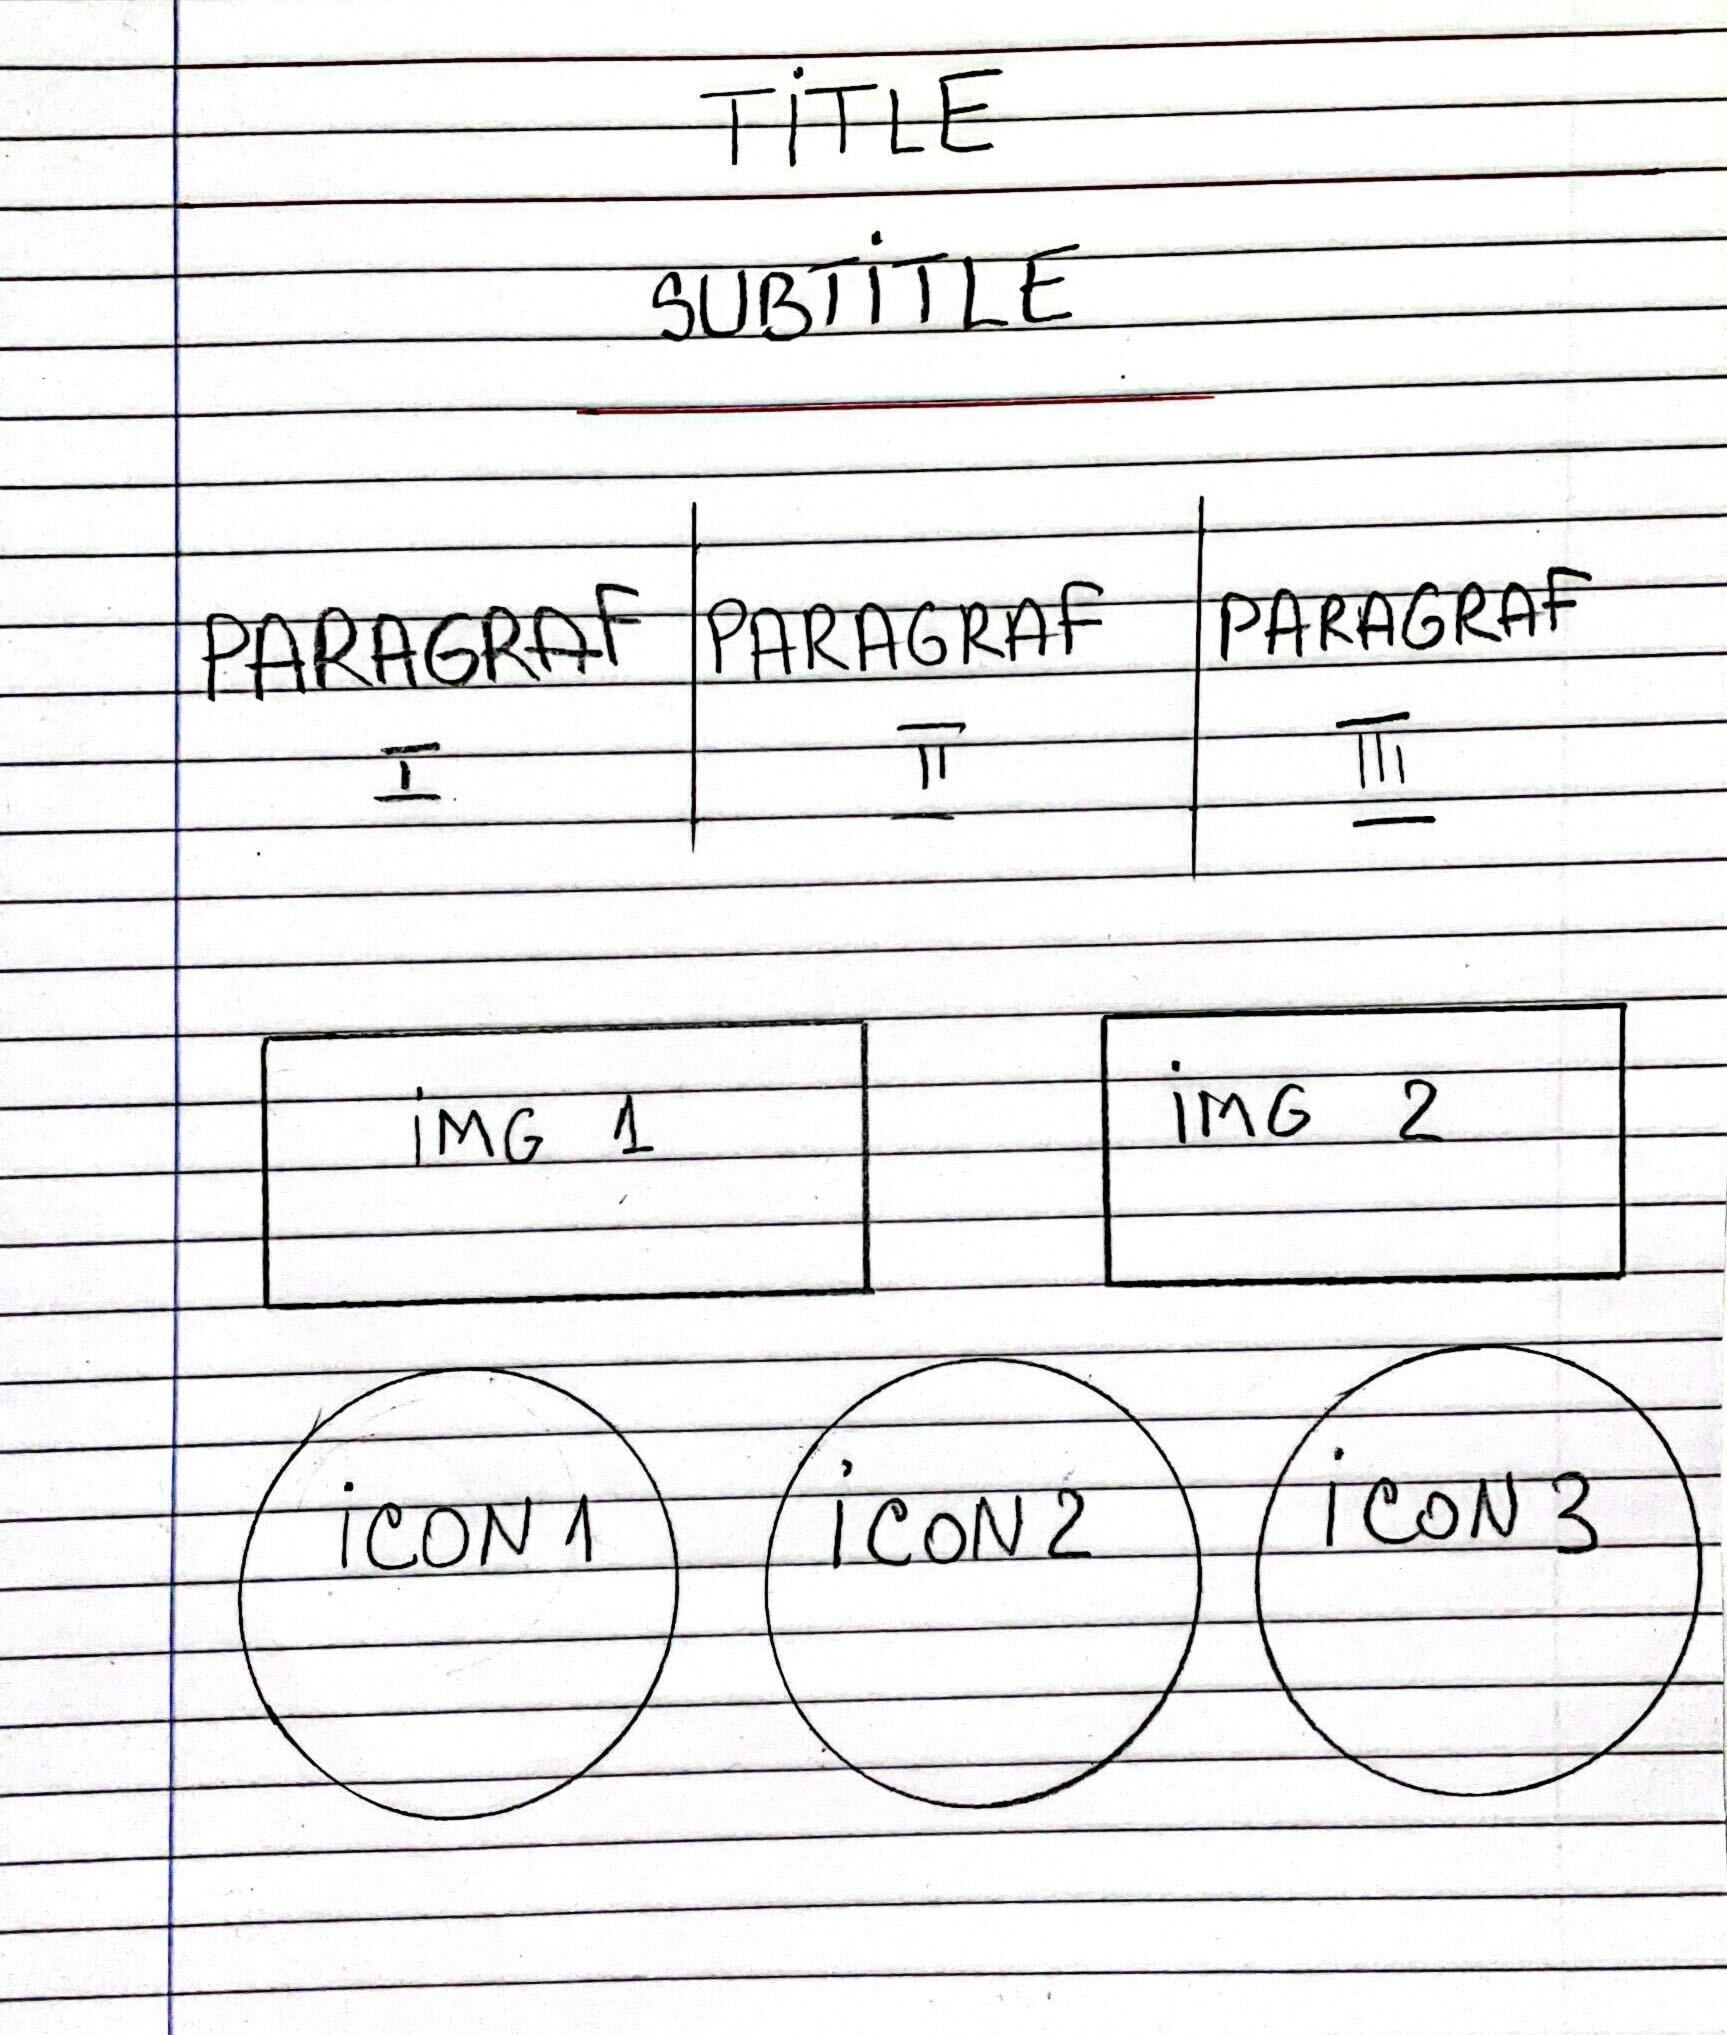 TİTLE
SUBTİTLE
PARAGRAF PARAGRAF PARAGRAF
I II III
İMG 1 İMG 2
İCON 1 İCON 2 İCON 3